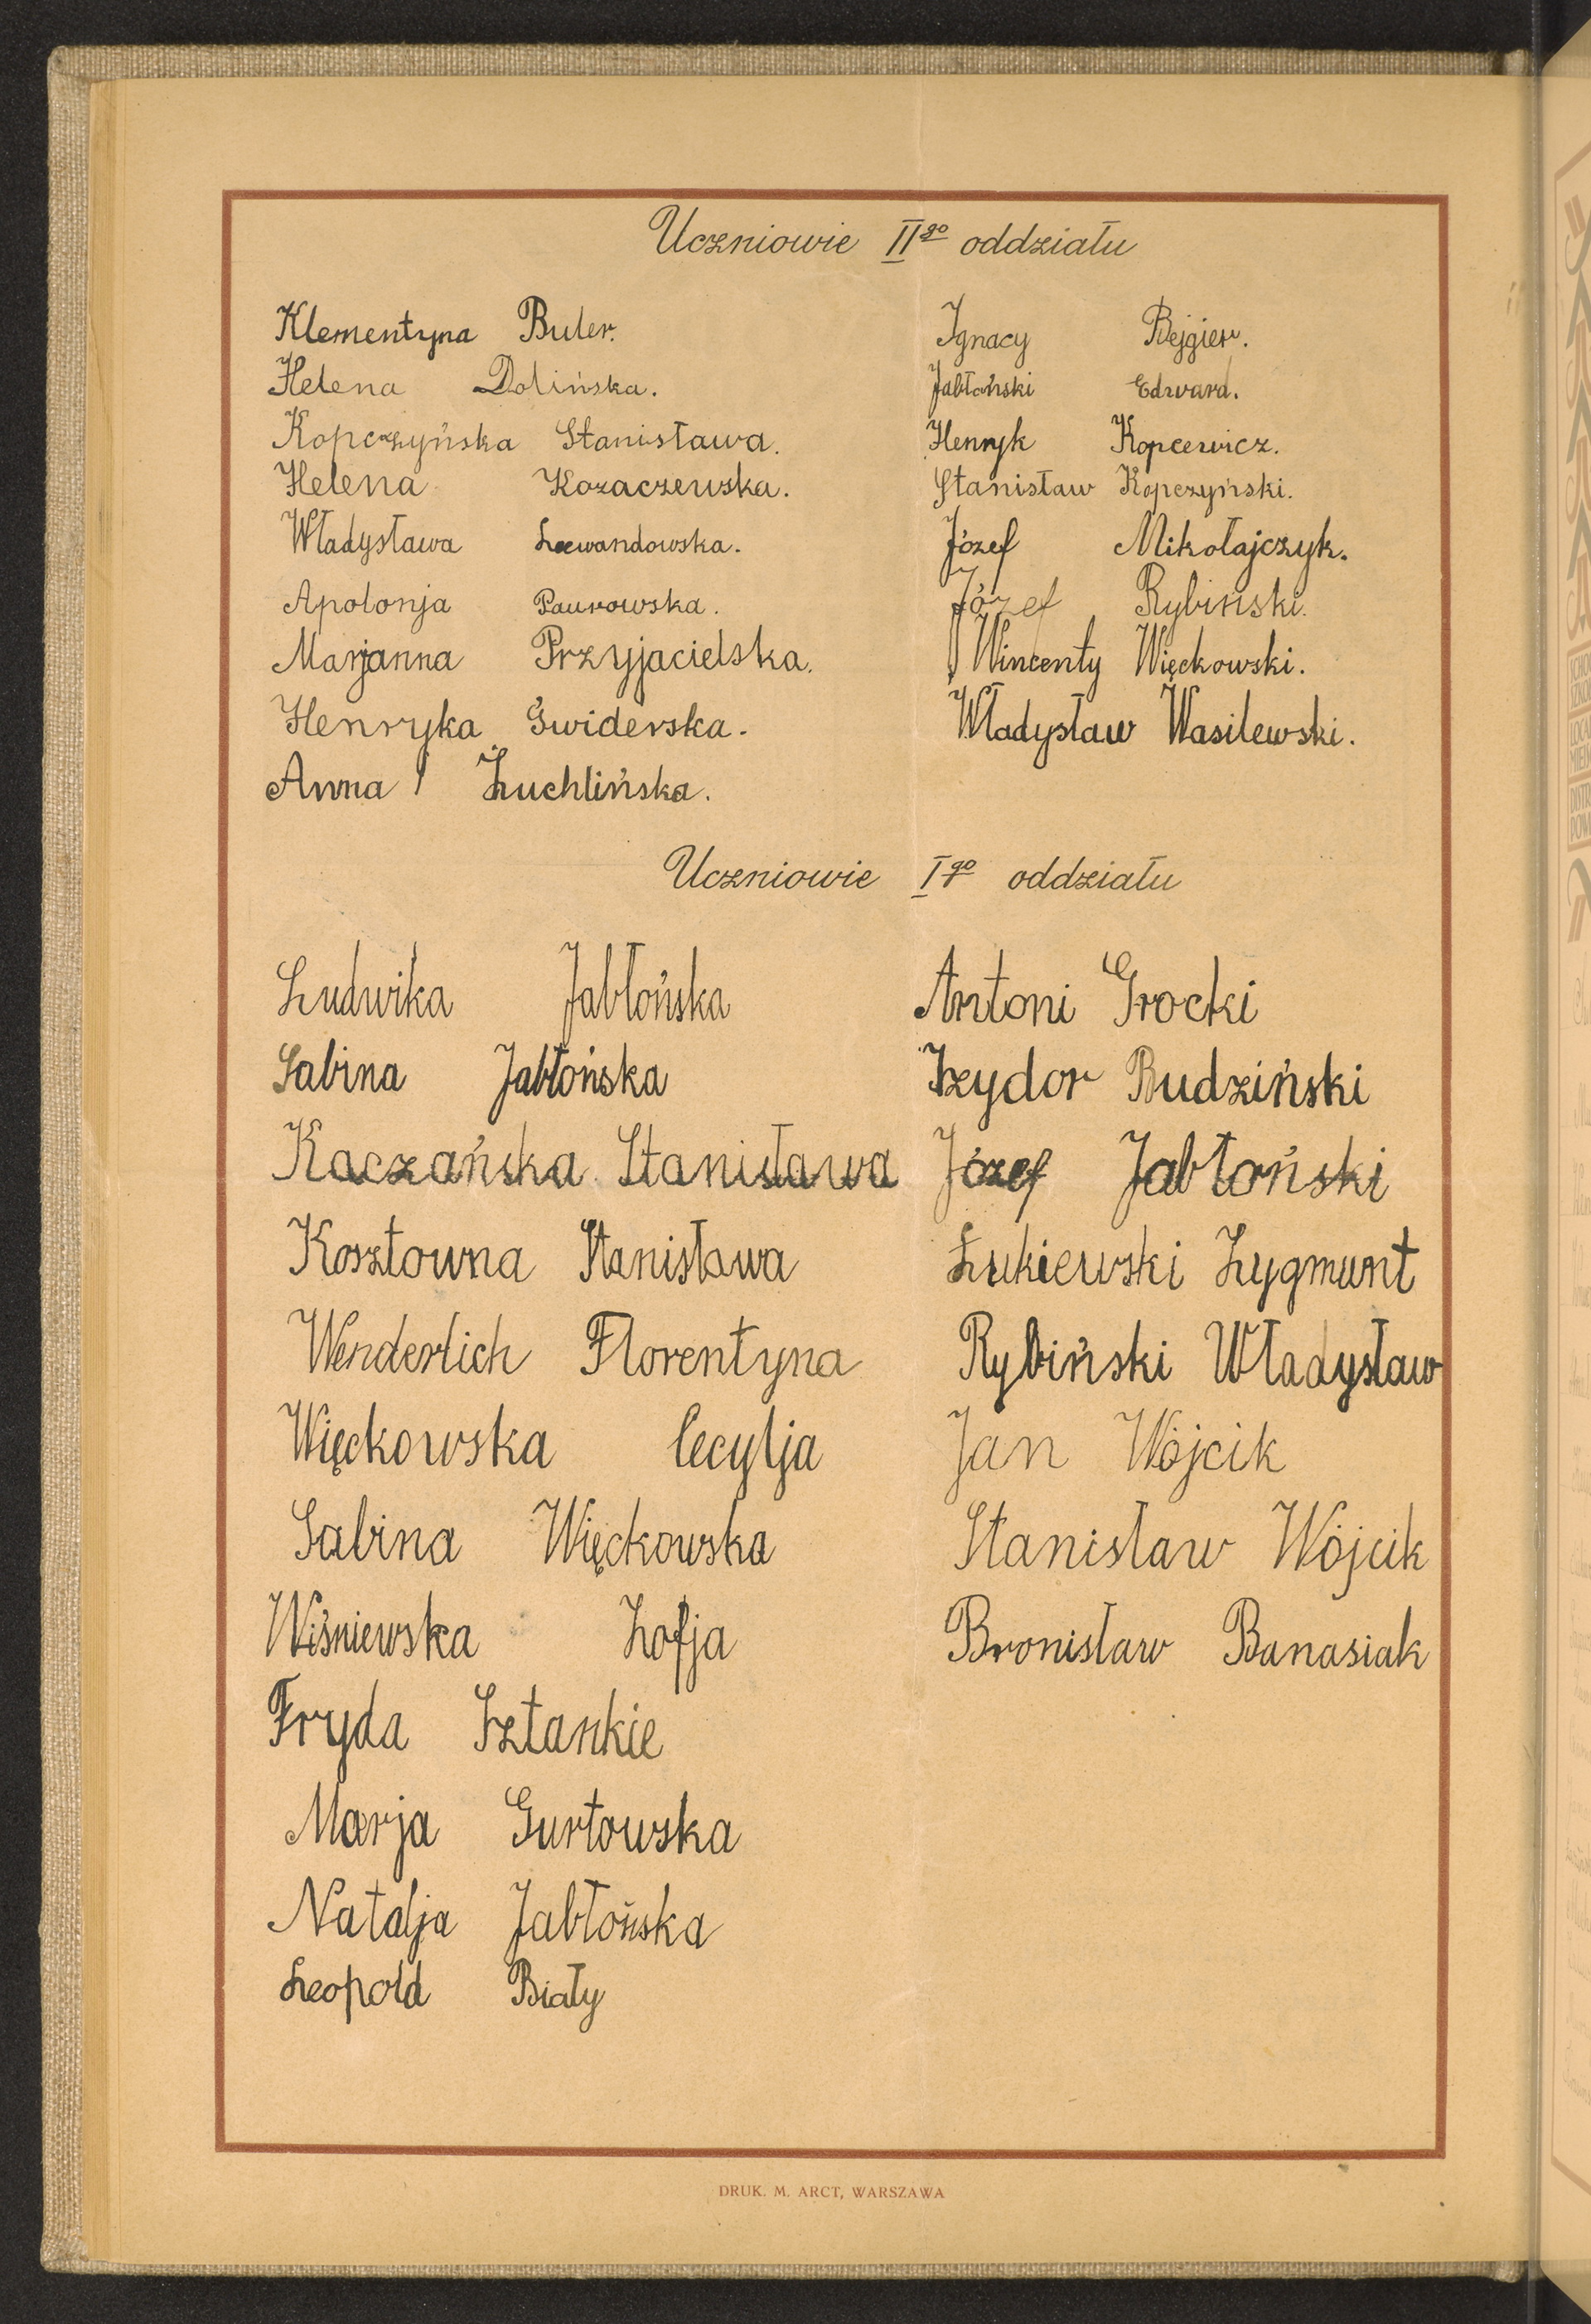 Uczniowie IIgo oddziału
Klementyna Buler.
Helena Dolińska.
Kopczyńska Stanisława.
Helena Kozaczewska.
Władysława Lewandowska.
Apolonja Paurowska.
Marjanna Przyjacielska.
Henryka Świderska.
Anna Żuchlińska.
Ignacy Bejgier.
Jabłoński Edward.
Henryk Kopcewicz.
Stanisław Kopczyński.
Józef Mikołajczyk.
Józef Rybiński.
Wincenty Więckowski.
Władysław Wasilewski.
Uczniowie Igo oddziału
Ludwika Jabłońska
Sabina Jabłońska
Kaczańska Stanisława
Kosztowna Stanisława
Wenderlich Florentyna
Więckowska Cecylja
Sabina Więckowska
Wiśniewska Zofja
Fryda Sztankie
Marja Gurtowska
Natalja Jabłońska
Leopold Biały
Antoni Grocki
Izydor Budziński
Józef Jabłoński
Łukiewski Zygmunt
Rybiński Władysław
Jan Wójcik
Stanisław Wójcik
Bronisław Banasiak
DRUK. M. ARCT, WARSZAWA